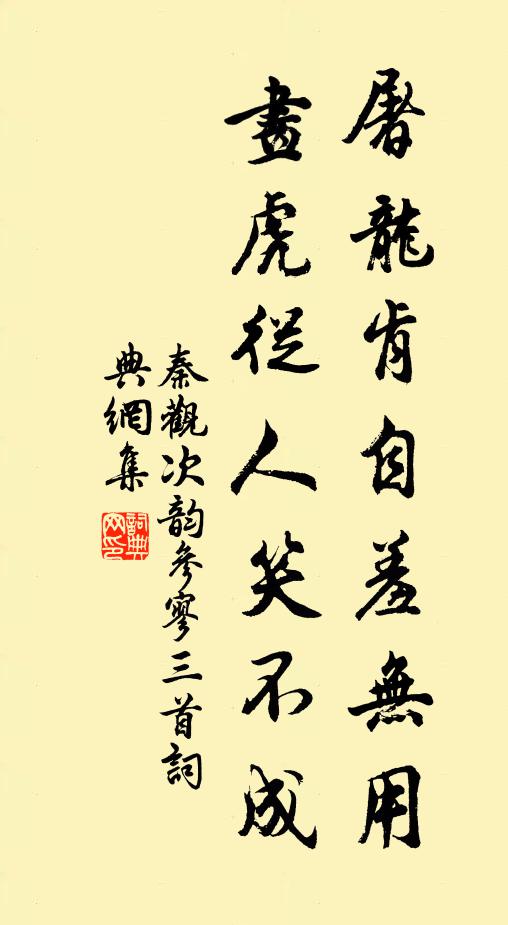 屠龍肯自羞無用
畫虎從人笑不成
秦觀次韵參寥三首詞
典網集
詞典
网印